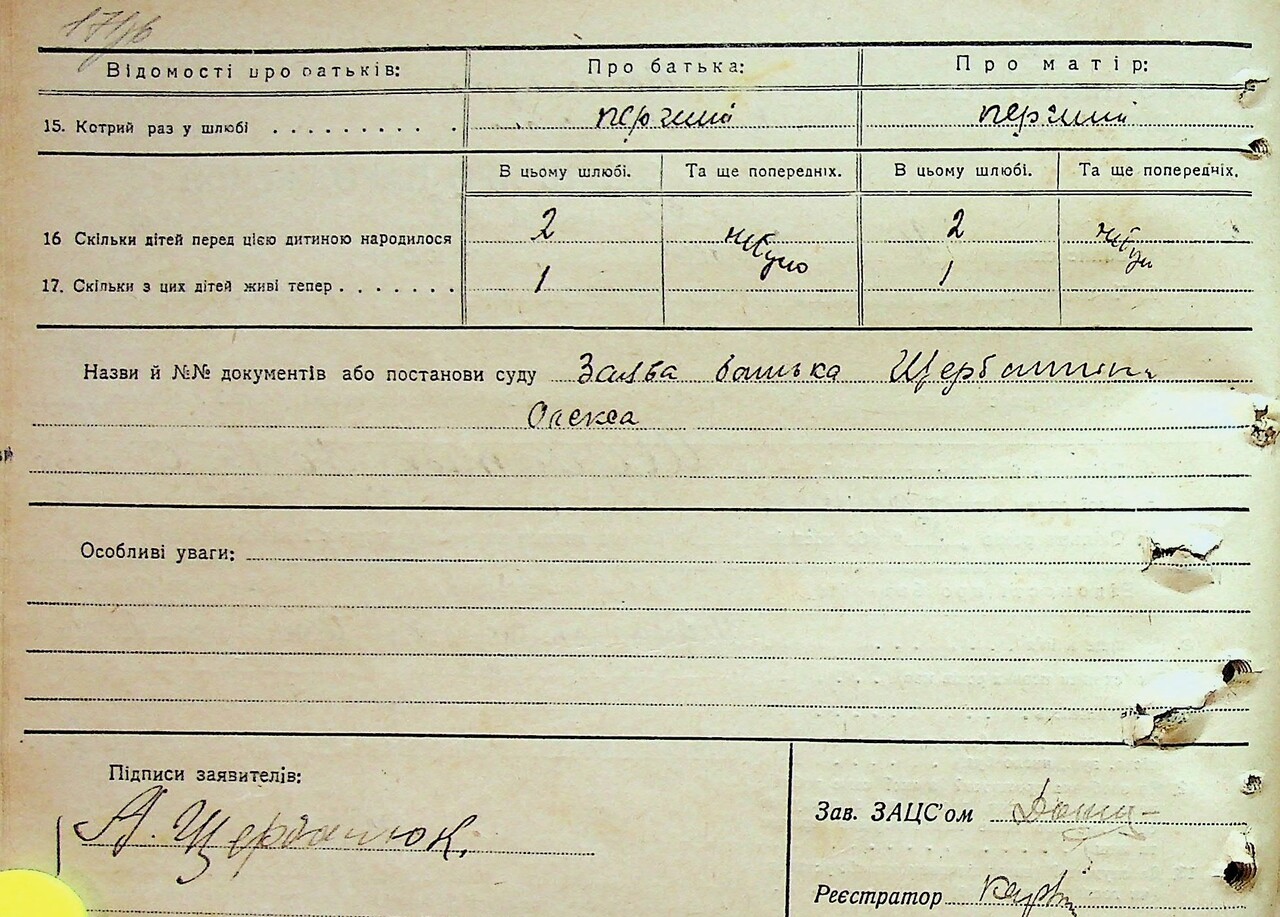 Відомості про батьків: Про батька: Про матір:
15. Котрий раз у шлюбі . . . . . . . . . . перший перший
В цьому шлюбі. Та ще попередніх. В цьому шлюбі. Та ще попередніх.
16 Скільки дітей перед цією дитиною народилося 2 не було 2
17. Скільки з цих дітей живі тепер . . . . . . . 1 1
Назви й №№ документів або постанови суду Заява батька
Олекса
Особливі уваги:
Підписи заявителів:
А. Щербатюк.
Зав. ЗАЦС'ом
Реєстратор